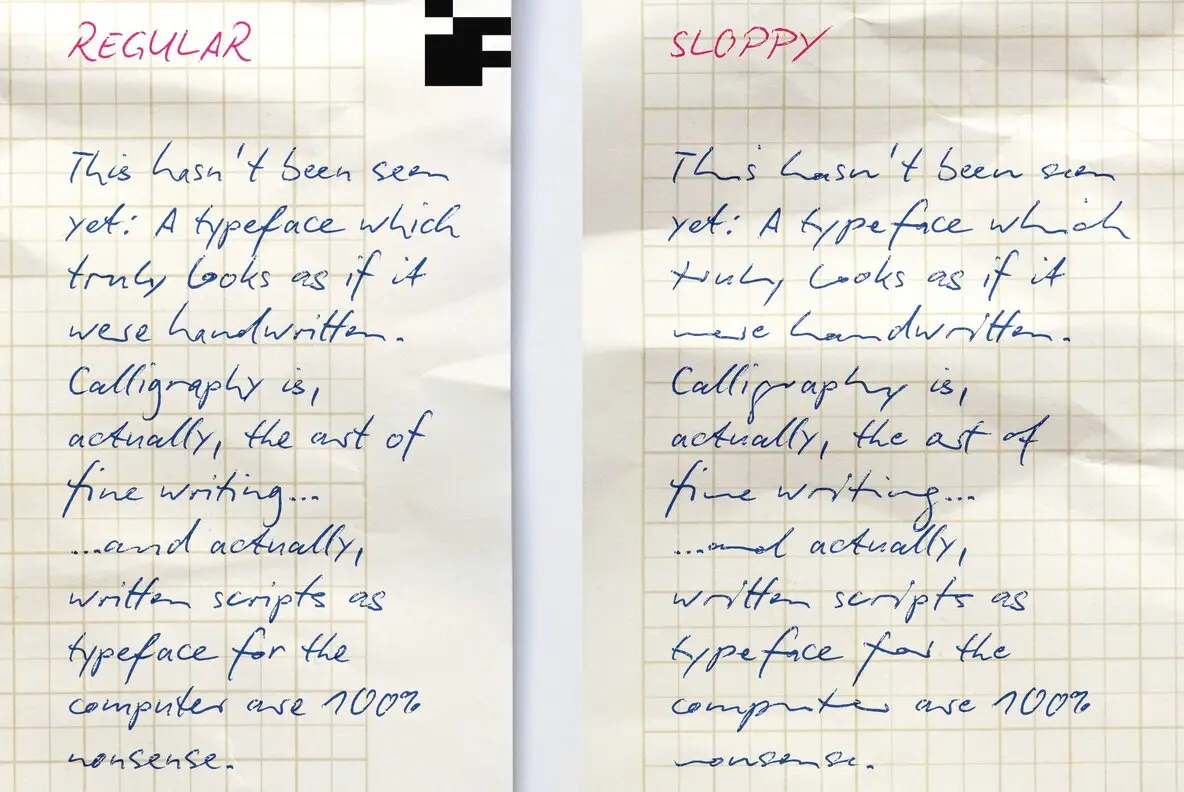 REGULAR
This hasn't been seen
yet: A typeface which
truly looks as if it
were handwritten.
Calligraphy is,
actually, the art of
fine writing...
...and actually,
written scripts as
typeface for the
computer are 100%
nonsense.
SLOPPY
This hasn't been seen
yet: A typeface which
truly looks as if it
were handwritten.
Calligraphy is,
actually, the art of
fine writing...
...and actually,
written scripts as
typeface for the
computer are 100%
nonsense.